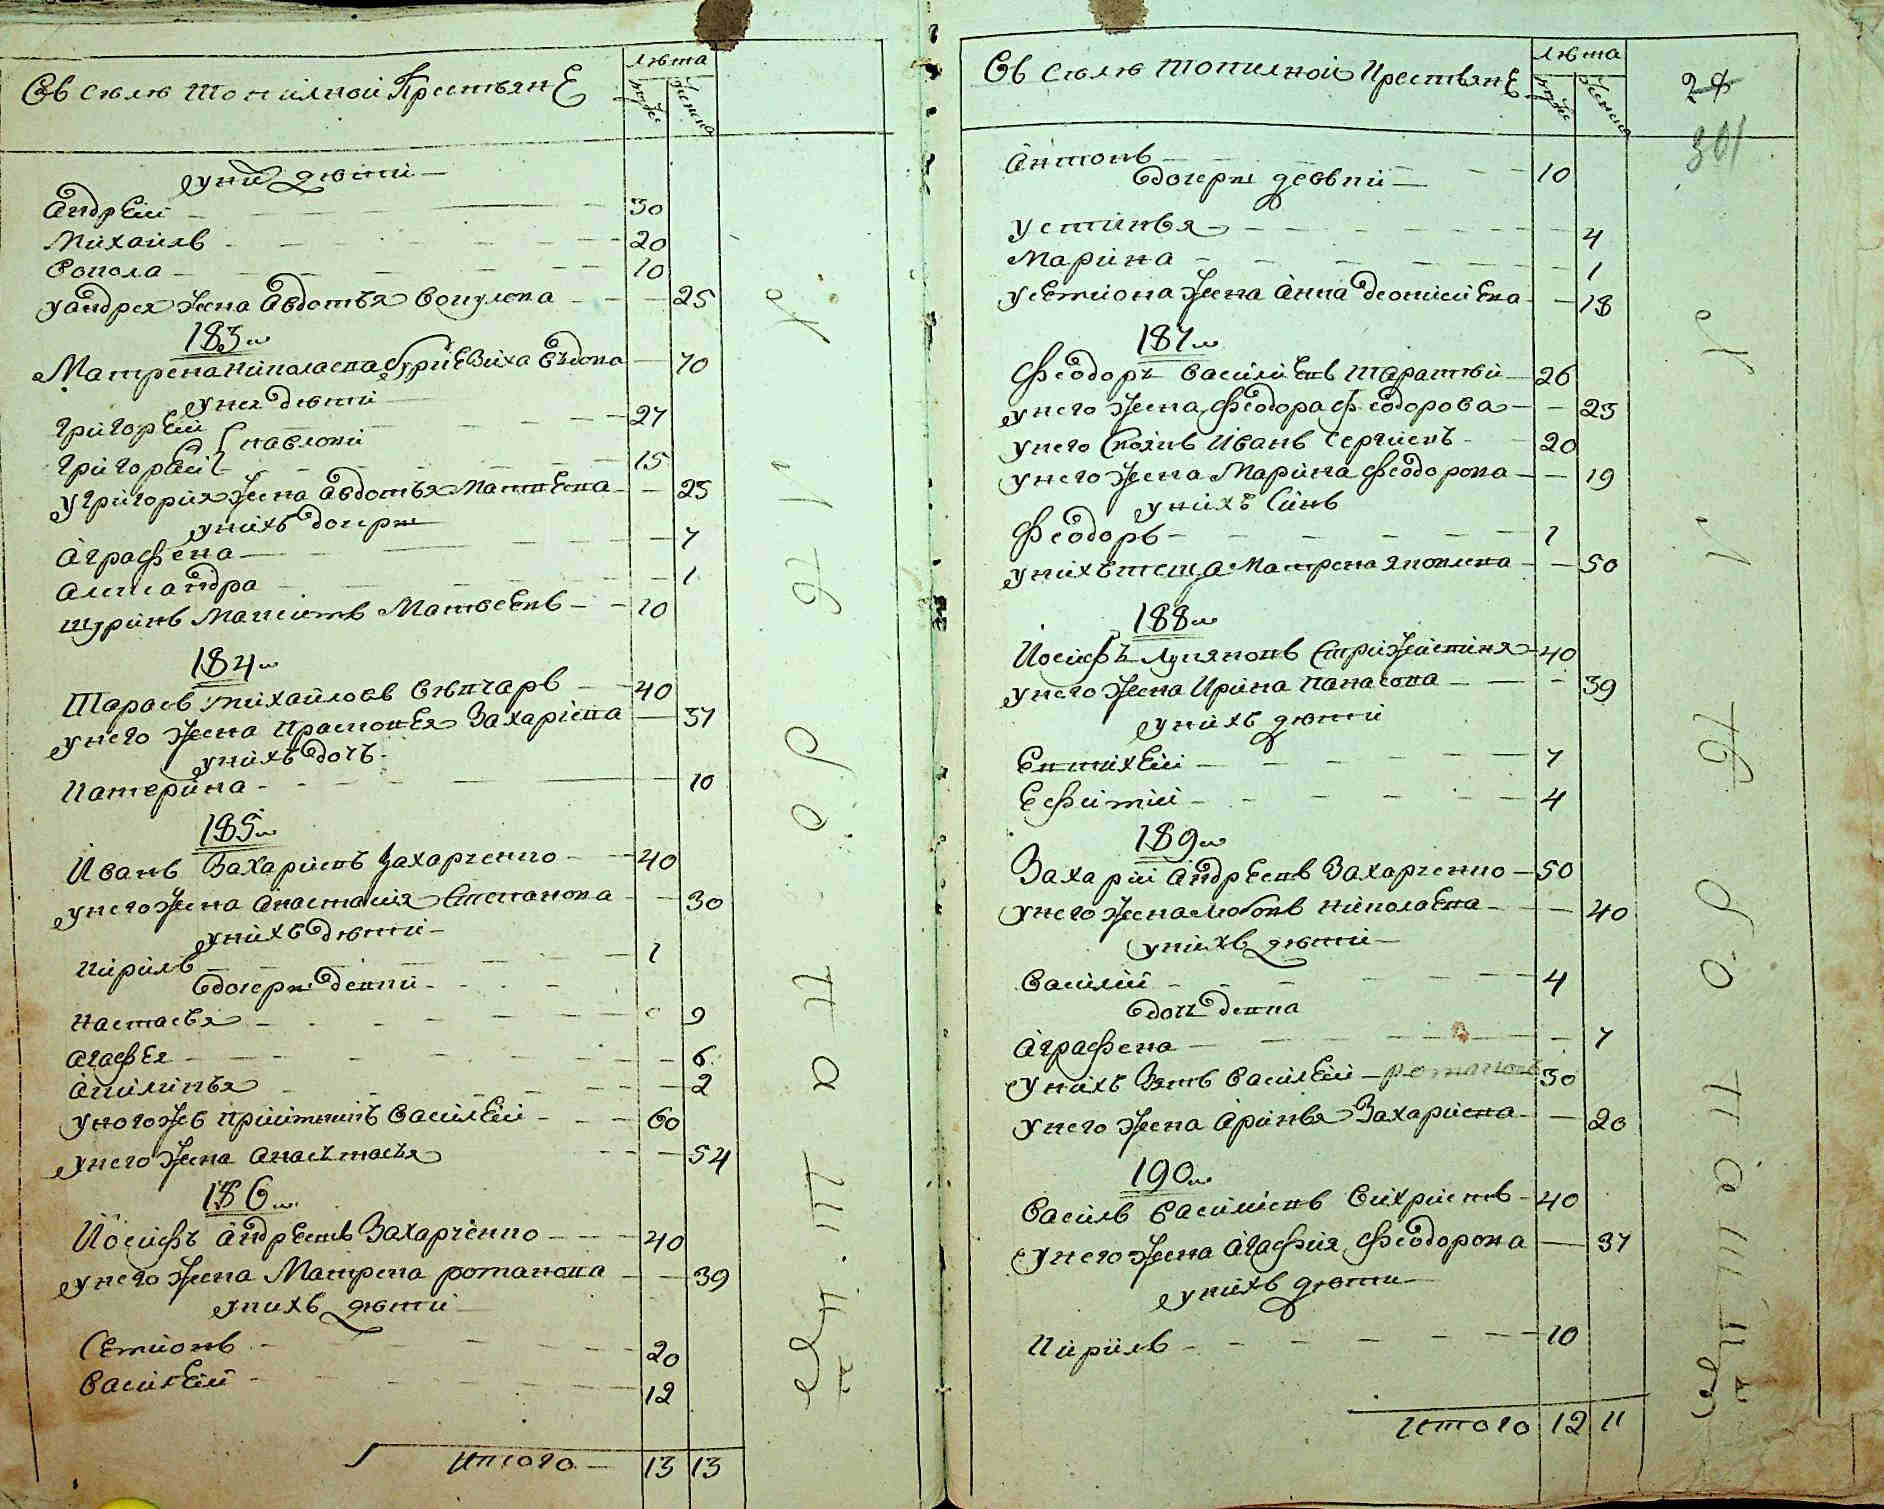 Въ селѣ Топилной Крестьянe
лѣта
мужес
женска
у нихъ дѣти
Андрей 30
Михайлъ 20
Вопола 10
у Андрея жена Авдотья Вакулова 25
183
Матрена Николаева Гриевиха вдова 70
у нея дѣти
Григорей 27
Павлови
Григорей 15
у Григория жена Авдотья Матвеева 25
у нихъ дочери
Аграфена 7
Александра 1
шуринъ Максимъ Матвеевъ 10
184
Тарасъ Михайловъ Овѣпчаръ 40
у него жена Прасковея Захариева 37
у нихъ дочъ
Катерина 10
185
Иванъ Захариевъ Захарченко 40
у него жена Анастасия Степанова 30
у нихъ дѣти
Кирилъ 1
дочери девки
Настасья 9
Агафея 6
Акилинья 2
у ного же приймакъ Василей 60
у него жена Анасътасъя 54
186
Иосифъ Андреевъ Захарченко 40
у него жена Матрена Романова 39
у нихъ дѣти
Семионъ 20
Василей 12
Итого 13 13
Въ селѣ Топилной Крестьянe
лѣта
мужес
женска
24
301
Антонъ 10
дочери девки
Устинья 4
Марина 1
у Семиона жена Анна Деонисиева 18
187
Феодоръ Василиевъ Таратый 26
у него жена Феодора Феодорова 25
у него своякъ Иванъ Сергиевъ 20
у него жена Марина Феодорова 19
у нихъ синъ
Феодоръ 1
у нихъ теща Матрена Яковлева 50
188
Иосифъ Лукяновъ 40
у него жена Ирина Панасова 39
у нихъ дѣти
Евтихей 7
Ефимий 4
189
Захарий Андреевъ Захарченко 50
у него жена Любовъ Николаева 40
у нихъ дѣти
Василий 4
дочъ девка
Аграфена 7
у нихъ зять Василей Романовъ 30
у него жена Аринья Захариева 20
190
Василъ Василиевъ 40
у него жена Агафия Феодорова 37
у нихъ дѣти
Кирилъ 10
Итого 12 11